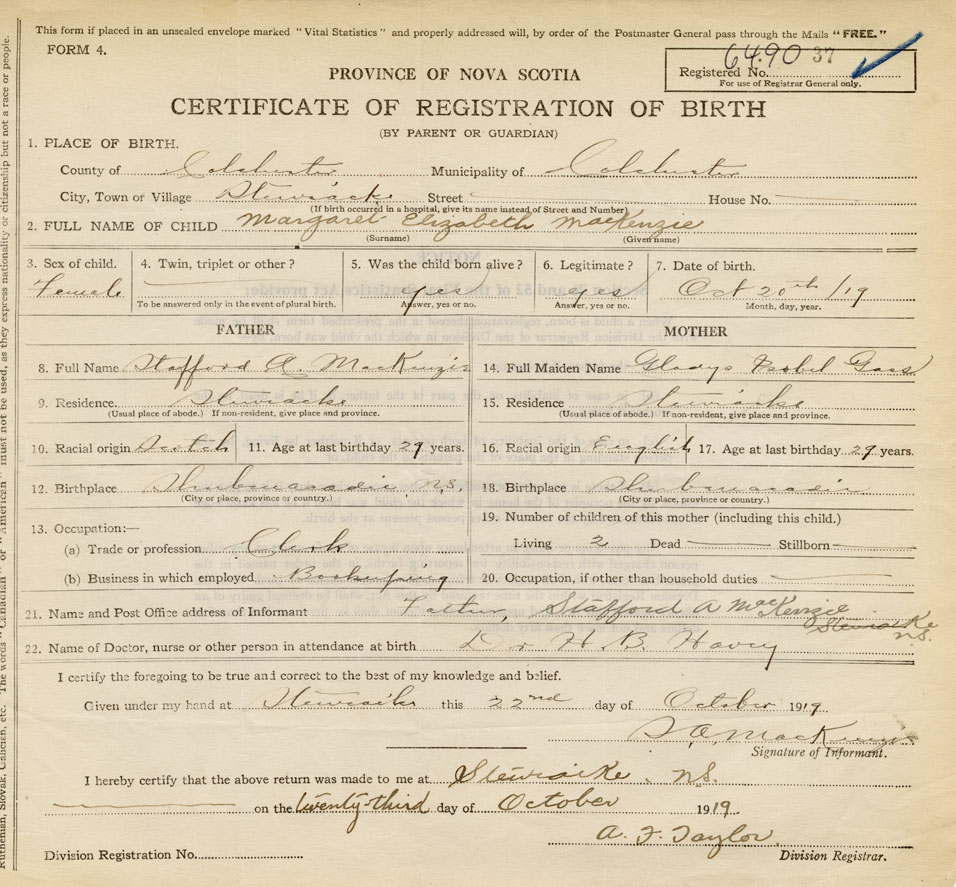 This form if placed in an unsealed envelope marked "Vital Statistics" and properly addressed will, by order of the Postmaster General pass through the Mails "FREE."
FORM 4.
6490 37
Registered No.
For use of Registrar General only.
PROVINCE OF NOVA SCOTIA
CERTIFICATE OF REGISTRATION OF BIRTH
(BY PARENT OR GUARDIAN)
1. PLACE OF BIRTH.
County of Colchester Municipality of Colchester
City, Town or Village Stewiacke Street House No.
(If birth occurred in a hospital, give its name instead of Street and Number)
2. FULL NAME OF CHILD Margaret Elizabeth MacKenzie
(Surname) (Given name)
3. Sex of child. 4. Twin, triplet or other? 5. Was the child born alive? 6. Legitimate? 7. Date of birth.
Female yes yes Oct 20th /19
To be answered only in the event of plural birth. Answer, yes or no. Answer, yes or no. Month, day, year.
FATHER MOTHER
8. Full Name Stafford A. MacKenzie 14. Full Maiden Name Gladys Isobel
9. Residence Stewiacke 15. Residence Stewiacke
(Usual place of abode.) If non-resident, give place and province. (Usual place of abode.) If non-resident, give place and province.
10. Racial origin Scotch 11. Age at last birthday 29 years. 16. Racial origin English 17. Age at last birthday 29 years.
12. Birthplace Shubenacadie N.S. 18. Birthplace Shubenacadie
(City or place, province or country.) (City or place, province or country.)
13. Occupation:— 19. Number of children of this mother (including this child.)
(a) Trade or profession Clerk Living 2 Dead Stillborn
(b) Business in which employed 20. Occupation, if other than household duties
21. Name and Post Office address of Informant Father, Stafford A MacKenzie
Stewiacke
N.S.
22. Name of Doctor, nurse or other person in attendance at birth Dr H. B. Havey
I certify the foregoing to be true and correct to the best of my knowledge and belief.
Given under my hand at Stewiacke this 22nd day of October 1919
S. A. MacKenzie
Signature of Informant.
I hereby certify that the above return was made to me at Stewiacke. N.S.
on the twenty-third day of October 1919
A. F. Taylor
Division Registration No. Division Registrar.
Ruthenian, Slovak, Galician, etc. The words "Canadian" or "American" must not be used, as they express nationality or citizenship but not a race or people.